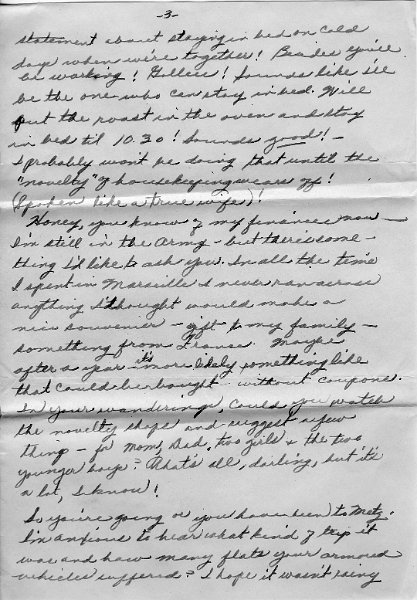 -3-
statement about staying in bed on cold
days when we're together! Besides you'll
be working! Gollees! Sounds like I'll
be the one who can stay in bed. Will
put the roast in the oven and stay
in bed til 10:30! Sounds good! -
I probably won't be doing that until the
"novelty" of housekeeping wears off!
(Spoken like a true wife)!
Honey, you know of my finances now -
I'm still in the Army - but there's some-
thing I'd like to ask you. In all the time
I spent in Marseille I never ran across
anything I thought would make a
nice souvenier - gift to my family -
something from France. Maybe
after a year it's more likely something like
that could be bought without coupons.
In your wanderings, could you watch
the novelty shops and suggest a few
things - for Mom, Dad, two girls & the two
younger boys? That's all, darling, but it's
a lot, I know!
So you're going or you have been to Metz.
I'm anxious to hear what kind of trip it
was and how many flats your armored
vehicles suffered? I hope it wasn't rainy